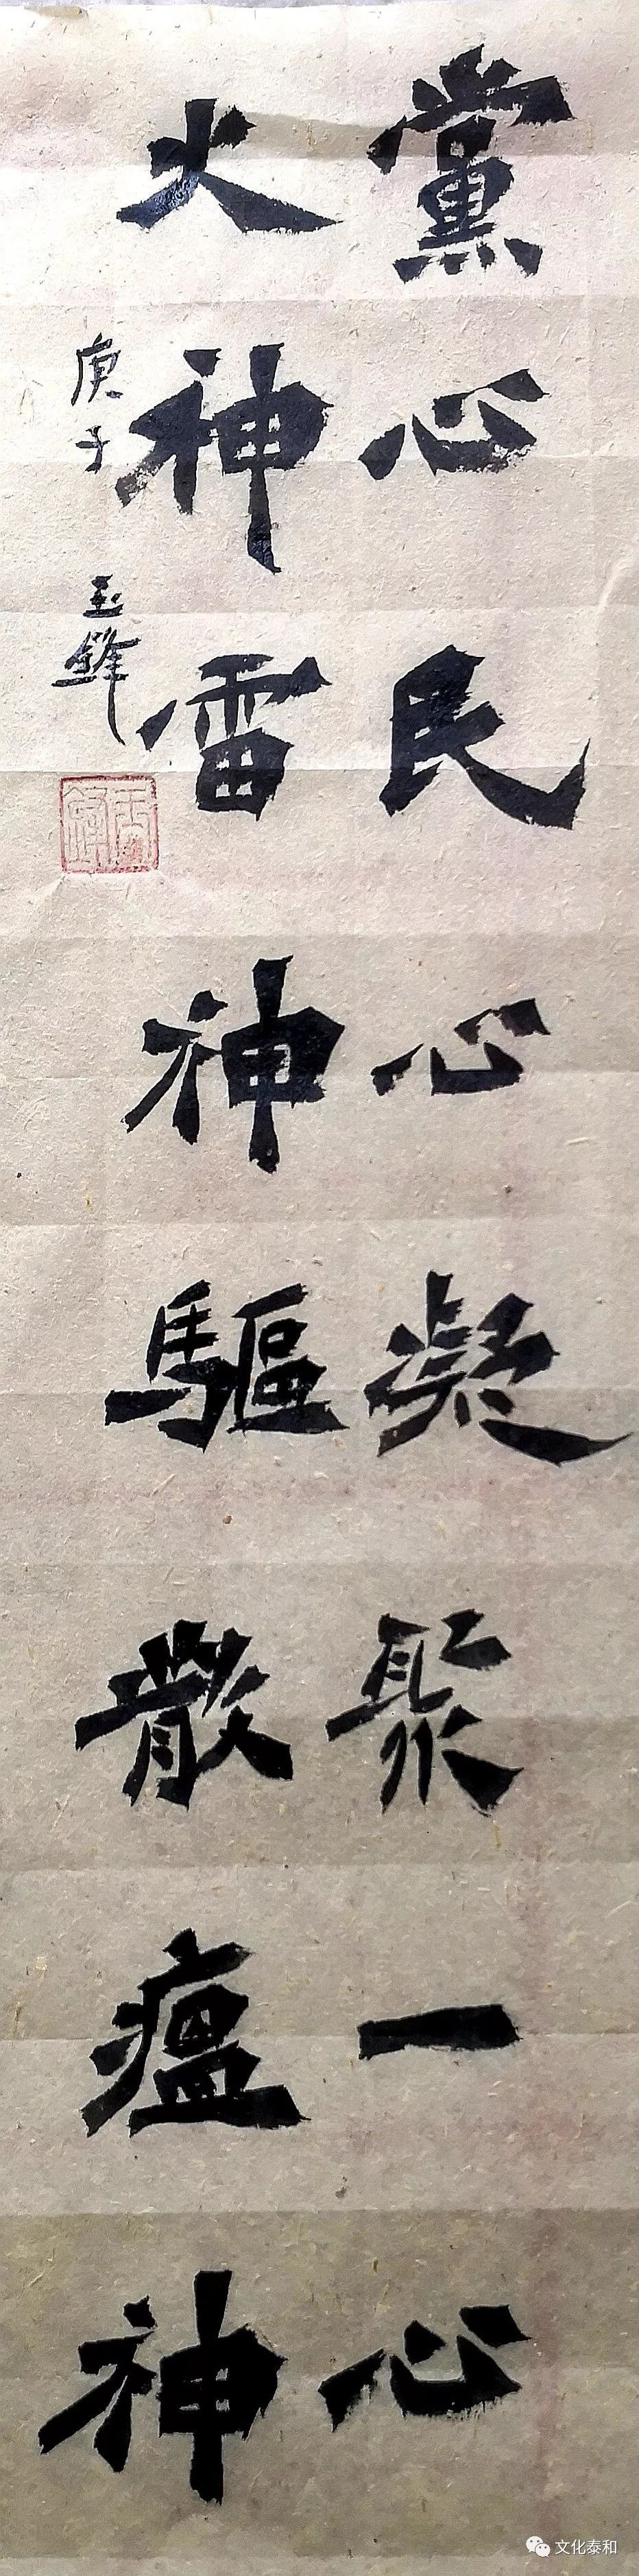 黨心民心凝聚一心
火神雷神驅散瘟神
庚子
玉鋒
玉鋒
文化泰和